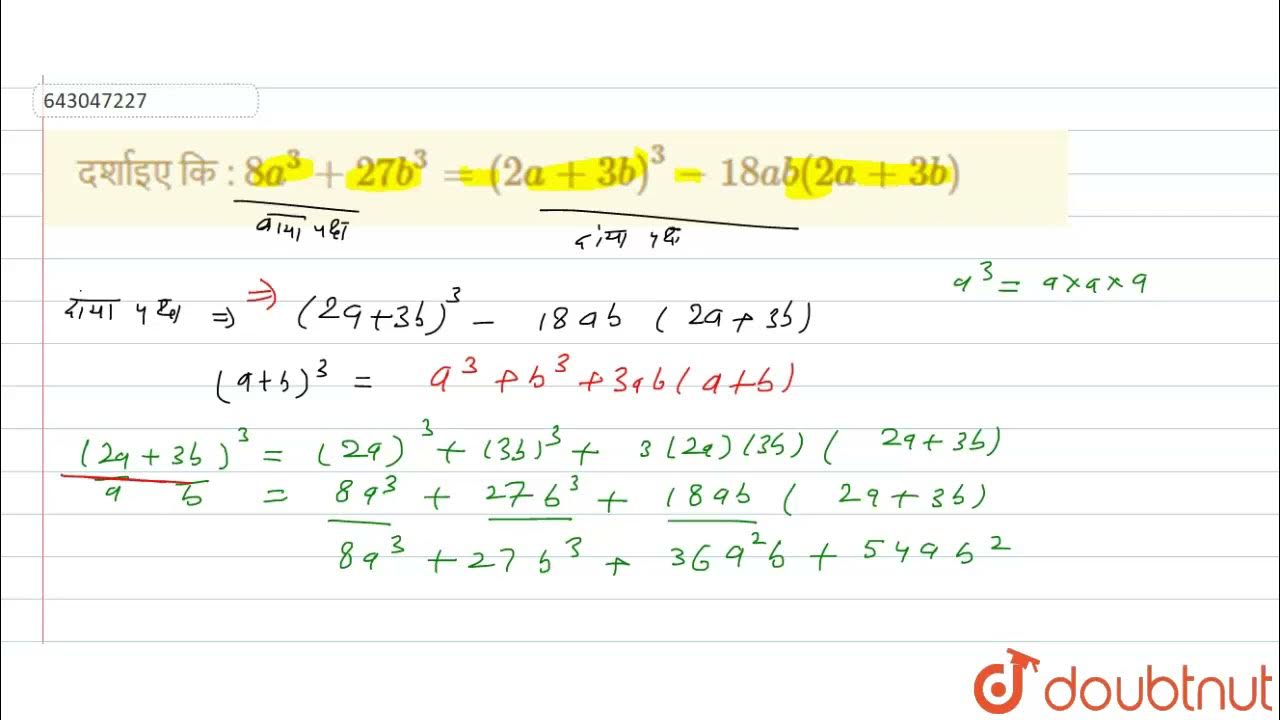 643047227
दर्शाइए कि : 8a³ + 27b³ = (2a + 3b)³ − 18ab(2a + 3b)
बाया पक्ष दांया पक्ष
a³ = a×a×a
दांया पक्ष ⇒ ⇒ (2a+3b)³ − 18ab (2a+3b)
(a+b)³ = a³ + b³ + 3ab(a+b)
(2a+3b)³ = (2a)³ + (3b)³ + 3(2a)(3b)(2a+3b)
a b = 8a³ + 27b³ + 18ab (2a+3b)
8a³ + 27b³ + 36a²b + 54ab²
doubtnut